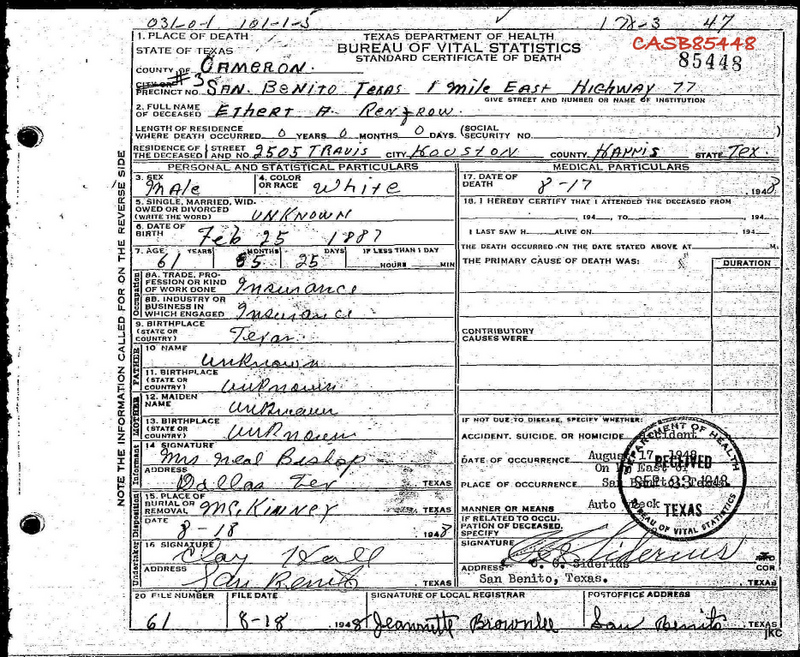 031-0-1 101-1-5 17x-3 47
1. PLACE OF DEATH
TEXAS DEPARTMENT OF HEALTH
CASB85448
STATE OF TEXAS
BUREAU OF VITAL STATISTICS
85448
STANDARD CERTIFICATE OF DEATH
COUNTY OF CAMERON.
CITY OR #3
PRECINCT NO. SAN. BENITO TEXAS 1 MILE EAST HIGHWAY 77
GIVE STREET AND NUMBER OR NAME OF INSTITUTION
2. FULL NAME
OF DECEASED Ethert A. Renfrow.
LENGTH OF RESIDENCE
WHERE DEATH OCCURRED 0 YEARS 0 MONTHS 0 DAYS. (SOCIAL SECURITY NO. )
RESIDENCE OF THE DECEASED STREET AND NO. 2505 TRAVIS CITY HOUSTON COUNTY HARRIS STATE TEX.
PERSONAL AND STATISTICAL PARTICULARS
3. SEX Male
4. COLOR OR RACE White
5. SINGLE, MARRIED, WIDOWED OR DIVORCED (WRITE THE WORD) UNKNOWN
6. DATE OF BIRTH Feb 25 1887
7. AGE YEARS MONTHS DAYS IF LESS THAN 1 DAY
61 5 25 HOURS MIN
Occupation
8A. TRADE, PROFESSION OR KIND OF WORK DONE Insurance
8B. INDUSTRY OR BUSINESS IN WHICH ENGAGED Insurance
9. BIRTHPLACE (STATE OR COUNTRY) Texas
FATHER
10 NAME Unknown
11. BIRTHPLACE (STATE OR COUNTRY) Unknown
MOTHER
12. MAIDEN NAME Unknown
13. BIRTHPLACE (STATE OR COUNTRY) Unknown
Informant
14 SIGNATURE Mrs Neal Bishop
ADDRESS Dallas Tex TEXAS
Disposition
15. PLACE OF BURIAL OR REMOVAL McKinney TEXAS
DATE 8-18 1948
Undertaker
16 SIGNATURE Clay Hall
ADDRESS San Benito TEXAS
MEDICAL PARTICULARS
17. DATE OF DEATH 8-17 1948
18. I HEREBY CERTIFY THAT I ATTENDED THE DECEASED FROM
, 194 , TO , 194
I LAST SAW H ALIVE ON 194
THE DEATH OCCURRED ON THE DATE STATED ABOVE AT M.
THE PRIMARY CAUSE OF DEATH WAS:
DURATION
CONTRIBUTORY CAUSES WERE
IF NOT DUE TO DISEASE, SPECIFY WHETHER:
ACCIDENT, SUICIDE, OR HOMICIDE Accident
DATE OF OCCURRENCE August 17, 1948
PLACE OF OCCURRENCE San Benito, Texas
MANNER OR MEANS Auto
IF RELATED TO OCCUPATION OF DECEASED, SPECIFY
SIGNATURE C G Siderius
Siderius
ADDRESS San Benito, Texas. COR TEXAS
DEPARTMENT OF HEALTH
RECEIVED
SEP 23 1948
TEXAS
BUREAU OF VITAL STATISTICS
20 FILE NUMBER FILE DATE SIGNATURE OF LOCAL REGISTRAR POSTOFFICE ADDRESS
61 8-18 1948 Jeannette Brownlee San Benito TEXAS
JKC
NOTE THE INFORMATION CALLED FOR ON THE REVERSE SIDE